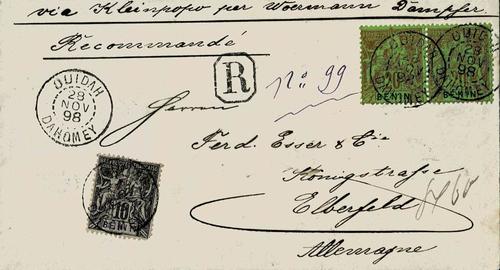 via Kleinpopo per Woermann Dampfer.
Recommandé
R
No 99
OUIDAH
28
NOV
98
DAHOMEY
28
NOV
98
BENIN
BENIN
Herren
Ferd. Esser & Cie
Königstrasse
Elberfeld
Allemagne
10
BENIN